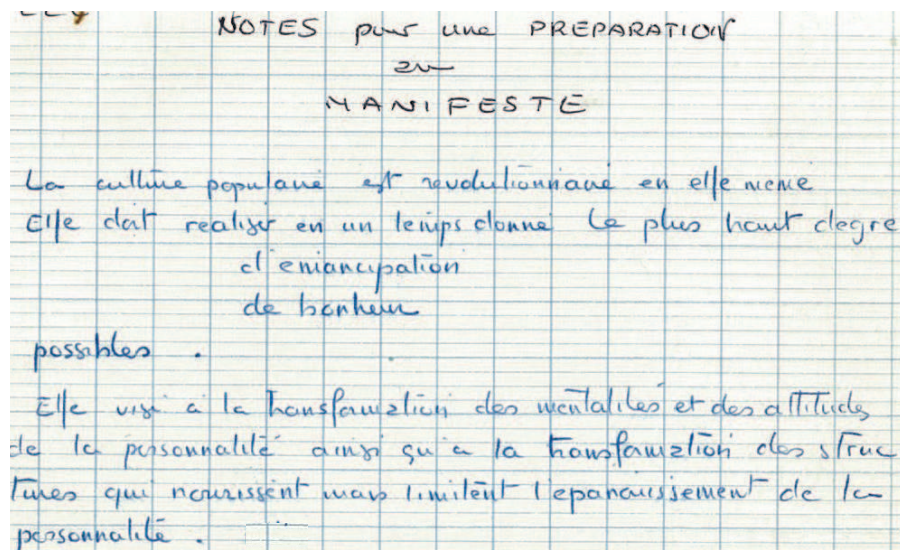 NOTES pour une PREPARATION
au
MANIFESTE
La culture populaire est revolutionnaire en elle meme
Elle doit realiser en un temps donné le plus haut degre
d'emancipation
de bonheur
possibles .
Elle vise à la transformation des mentalités et des attitudes
de la personnalité ainsi qu'a la transformation des struc
tures qui nourrissent mais limitent l'epanouissement de la
personnalité .